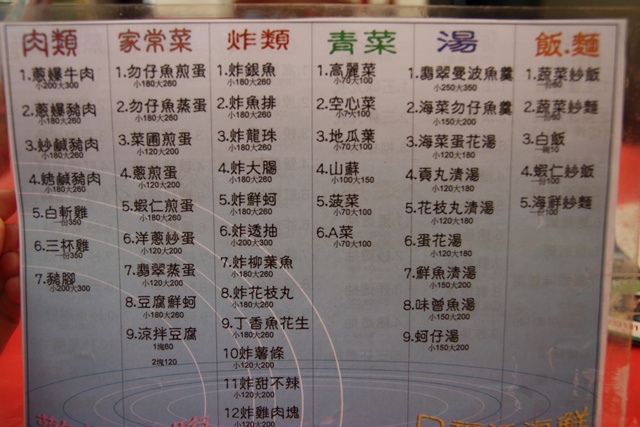 肉類
1.蔥爆牛肉
小200大300
2.蔥爆豬肉
小180大260
3.炒鹹豬肉
小180大260
4.燒鹹豬肉
小180大260
5.白斬雞
一份350
6.三杯雞
一份350
7.豬腳
小200大300
家常菜
1.勿仔魚煎蛋
小180大260
2.勿仔魚蒸蛋
小180大260
3.菜圃煎蛋
小120大200
4.蔥煎蛋
小120大200
5.蝦仁煎蛋
小180大260
6.洋蔥炒蛋
小120大200
7.翡翠蒸蛋
小120大200
8.豆腐鮮蚵
小180大260
9.涼拌豆腐
1塊60
2塊120
炸類
1.炸銀魚
小180大260
2.炸魚排
小180大260
3.炸龍珠
小180大260
4.炸大腸
小180大260
5.炸鮮蚵
小180大260
6.炸透抽
小200大300
7.炸柳葉魚
小180大260
8.炸花枝丸
小180大260
9.丁香魚花生
小180大260
10炸薯條
小120大200
11炸甜不辣
小120大200
12炸雞肉塊
小120大200
青菜
1.高麗菜
小70大100
2.空心菜
小70大100
3.地瓜葉
小70大100
4.山蘇
小100大150
5.菠菜
小70大100
6.A菜
小70大100
湯
1.翡翠曼波魚羹
小250大350
2.海菜勿仔魚羹
小150大200
3.海菜蛋花湯
小120大180
4.貢丸清湯
小120大180
5.花枝丸清湯
小120大180
6.蛋花湯
小120大180
7.鮮魚清湯
小150大200
8.味噌魚湯
小150大200
9.蚵仔湯
小150大200
飯.麵
1.蔬菜炒飯
一份60
2.蔬菜炒麵
一份60
3.白飯
一碗10
4.蝦仁炒飯
一份100
5.海鮮炒麵
一份100